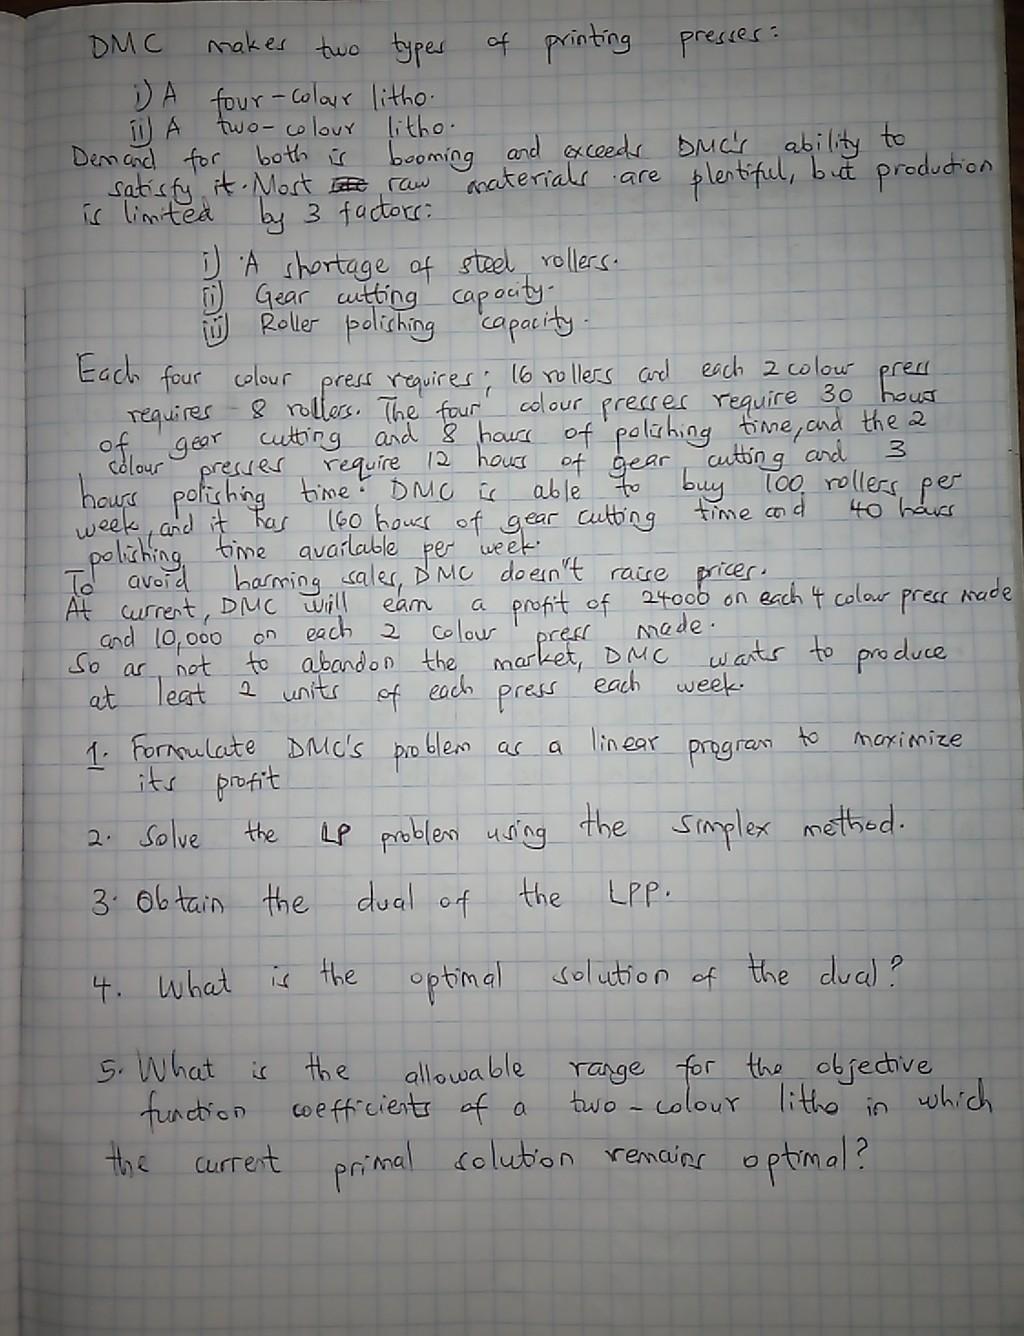 DMC makes two types of printing presses:
i) A four-colour litho.
ii) A two-colour litho.
Demand for both is booming and exceeds DMC's ability to
satisfy it. Most raw materials are plentiful, but production
is limited by 3 factors:
i) A shortage of steel rollers.
ii) Gear cutting capacity.
iii) Roller polishing capacity.
Each four colour press requires; 16 rollers and each 2 colour press
requires 8 rollers. The four colour presses require 30 hours
of gear cutting and 8 hours of polishing time, and the 2
colour presses require 12 hours of gear cutting and 3
hours polishing time. DMC is able to buy 100 rollers per
week, and it has 160 hours of gear cutting time and 40 hours
polishing time available per week.
To avoid harming sales, DMC doesn't raise prices.
At current, DMC will earn a profit of 24000 on each 4 colour press made
and 10,000 on each 2 colour press made.
So as not to abandon the market, DMC wants to produce
at least 2 units of each press each week.
1. Formulate DMC's problem as a linear program to maximize
its profit
2. Solve the LP problem using the simplex method.
3. Obtain the dual of the LPP.
4. What is the optimal solution of the dual?
5. What is the allowable range for the objective
function coefficients of a two-colour litho in which
the current primal solution remains optimal?